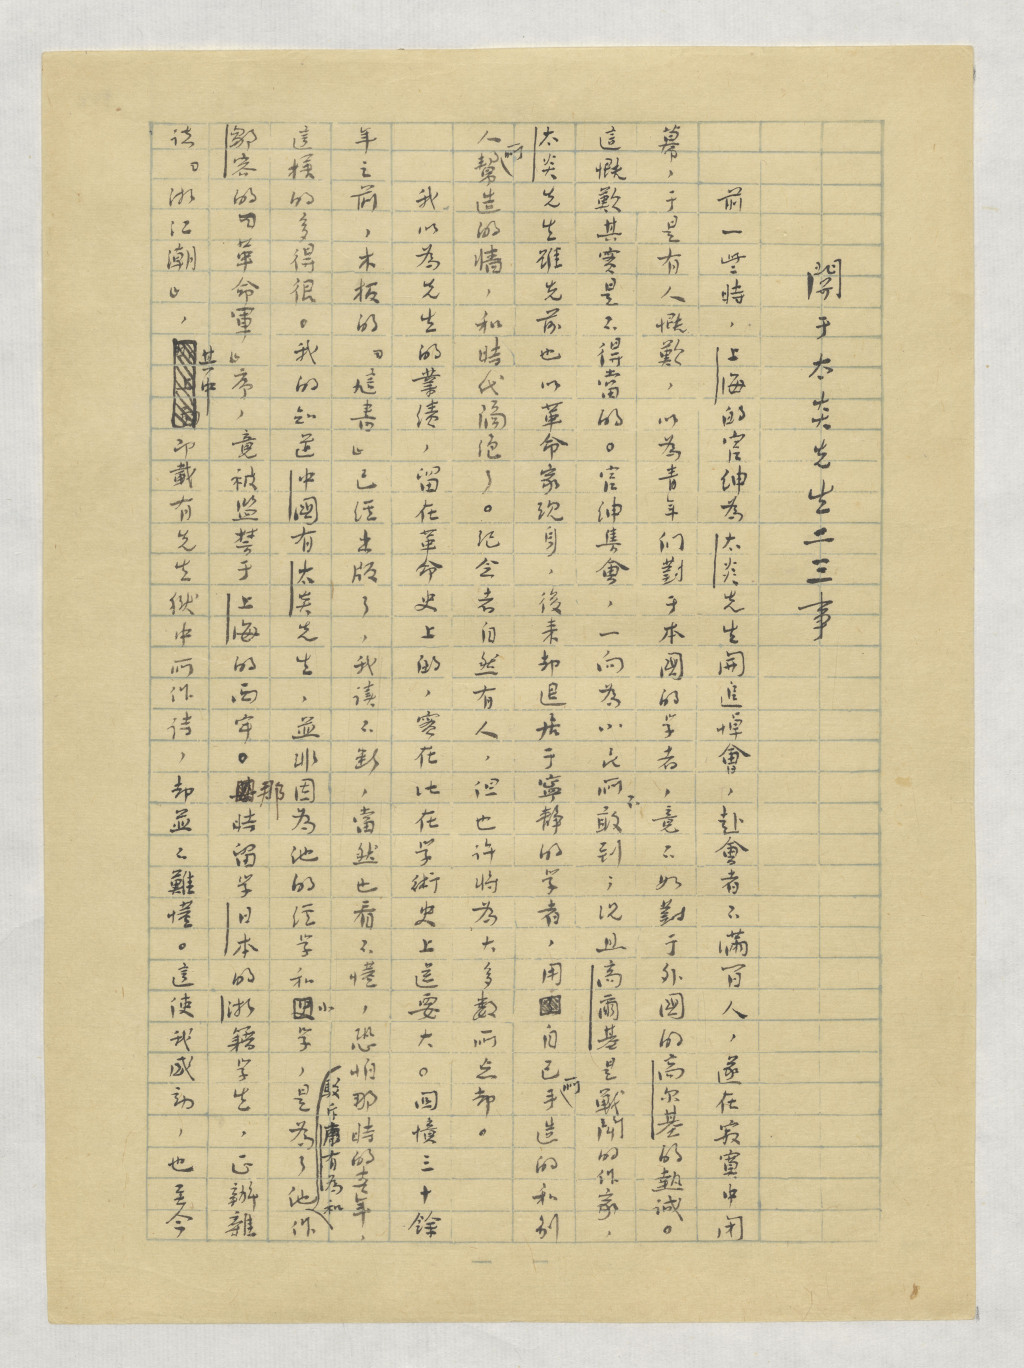 關于太炎先生二三事
前一些時，上海的官紳為太炎先生開追悼會，赴會者不滿百人，遂在寂寞中閉
幕，于是有人慨歎，以為青年們對于本國的学者，竟不如對于外國的高尔基的熱誠。
這慨歎其實是不得當的。官紳集會，一向為小民所不敢到；况且高爾基是戰鬥的作家，
太炎先生雖先前也以革命家現身，後来却退居于寧靜的学者，用自己所手造的和別
人所幫造的墻，和時代隔绝了。纪念者自然有人，但也许将為大多數所忘却。
我以為先生的業績，留在革命史上的，實在比在学術史上還要大。回憶三十餘
年之前，木板的『訄書』已經出版了，我读不斷，當然也看不懂，恐怕那時的青年，
這樣的多得很。我的知道中國有太炎先生，並非因為他的經学和小学，是為了他駁斥康有為和作
鄒容的『革命軍』序，竟被監禁于上海的西牢。那時留学日本的浙籍学生，正辦雜
誌『浙江潮』，其中即載有先生獄中所作詩，却並不難懂。這使我感動，也至今
一 一